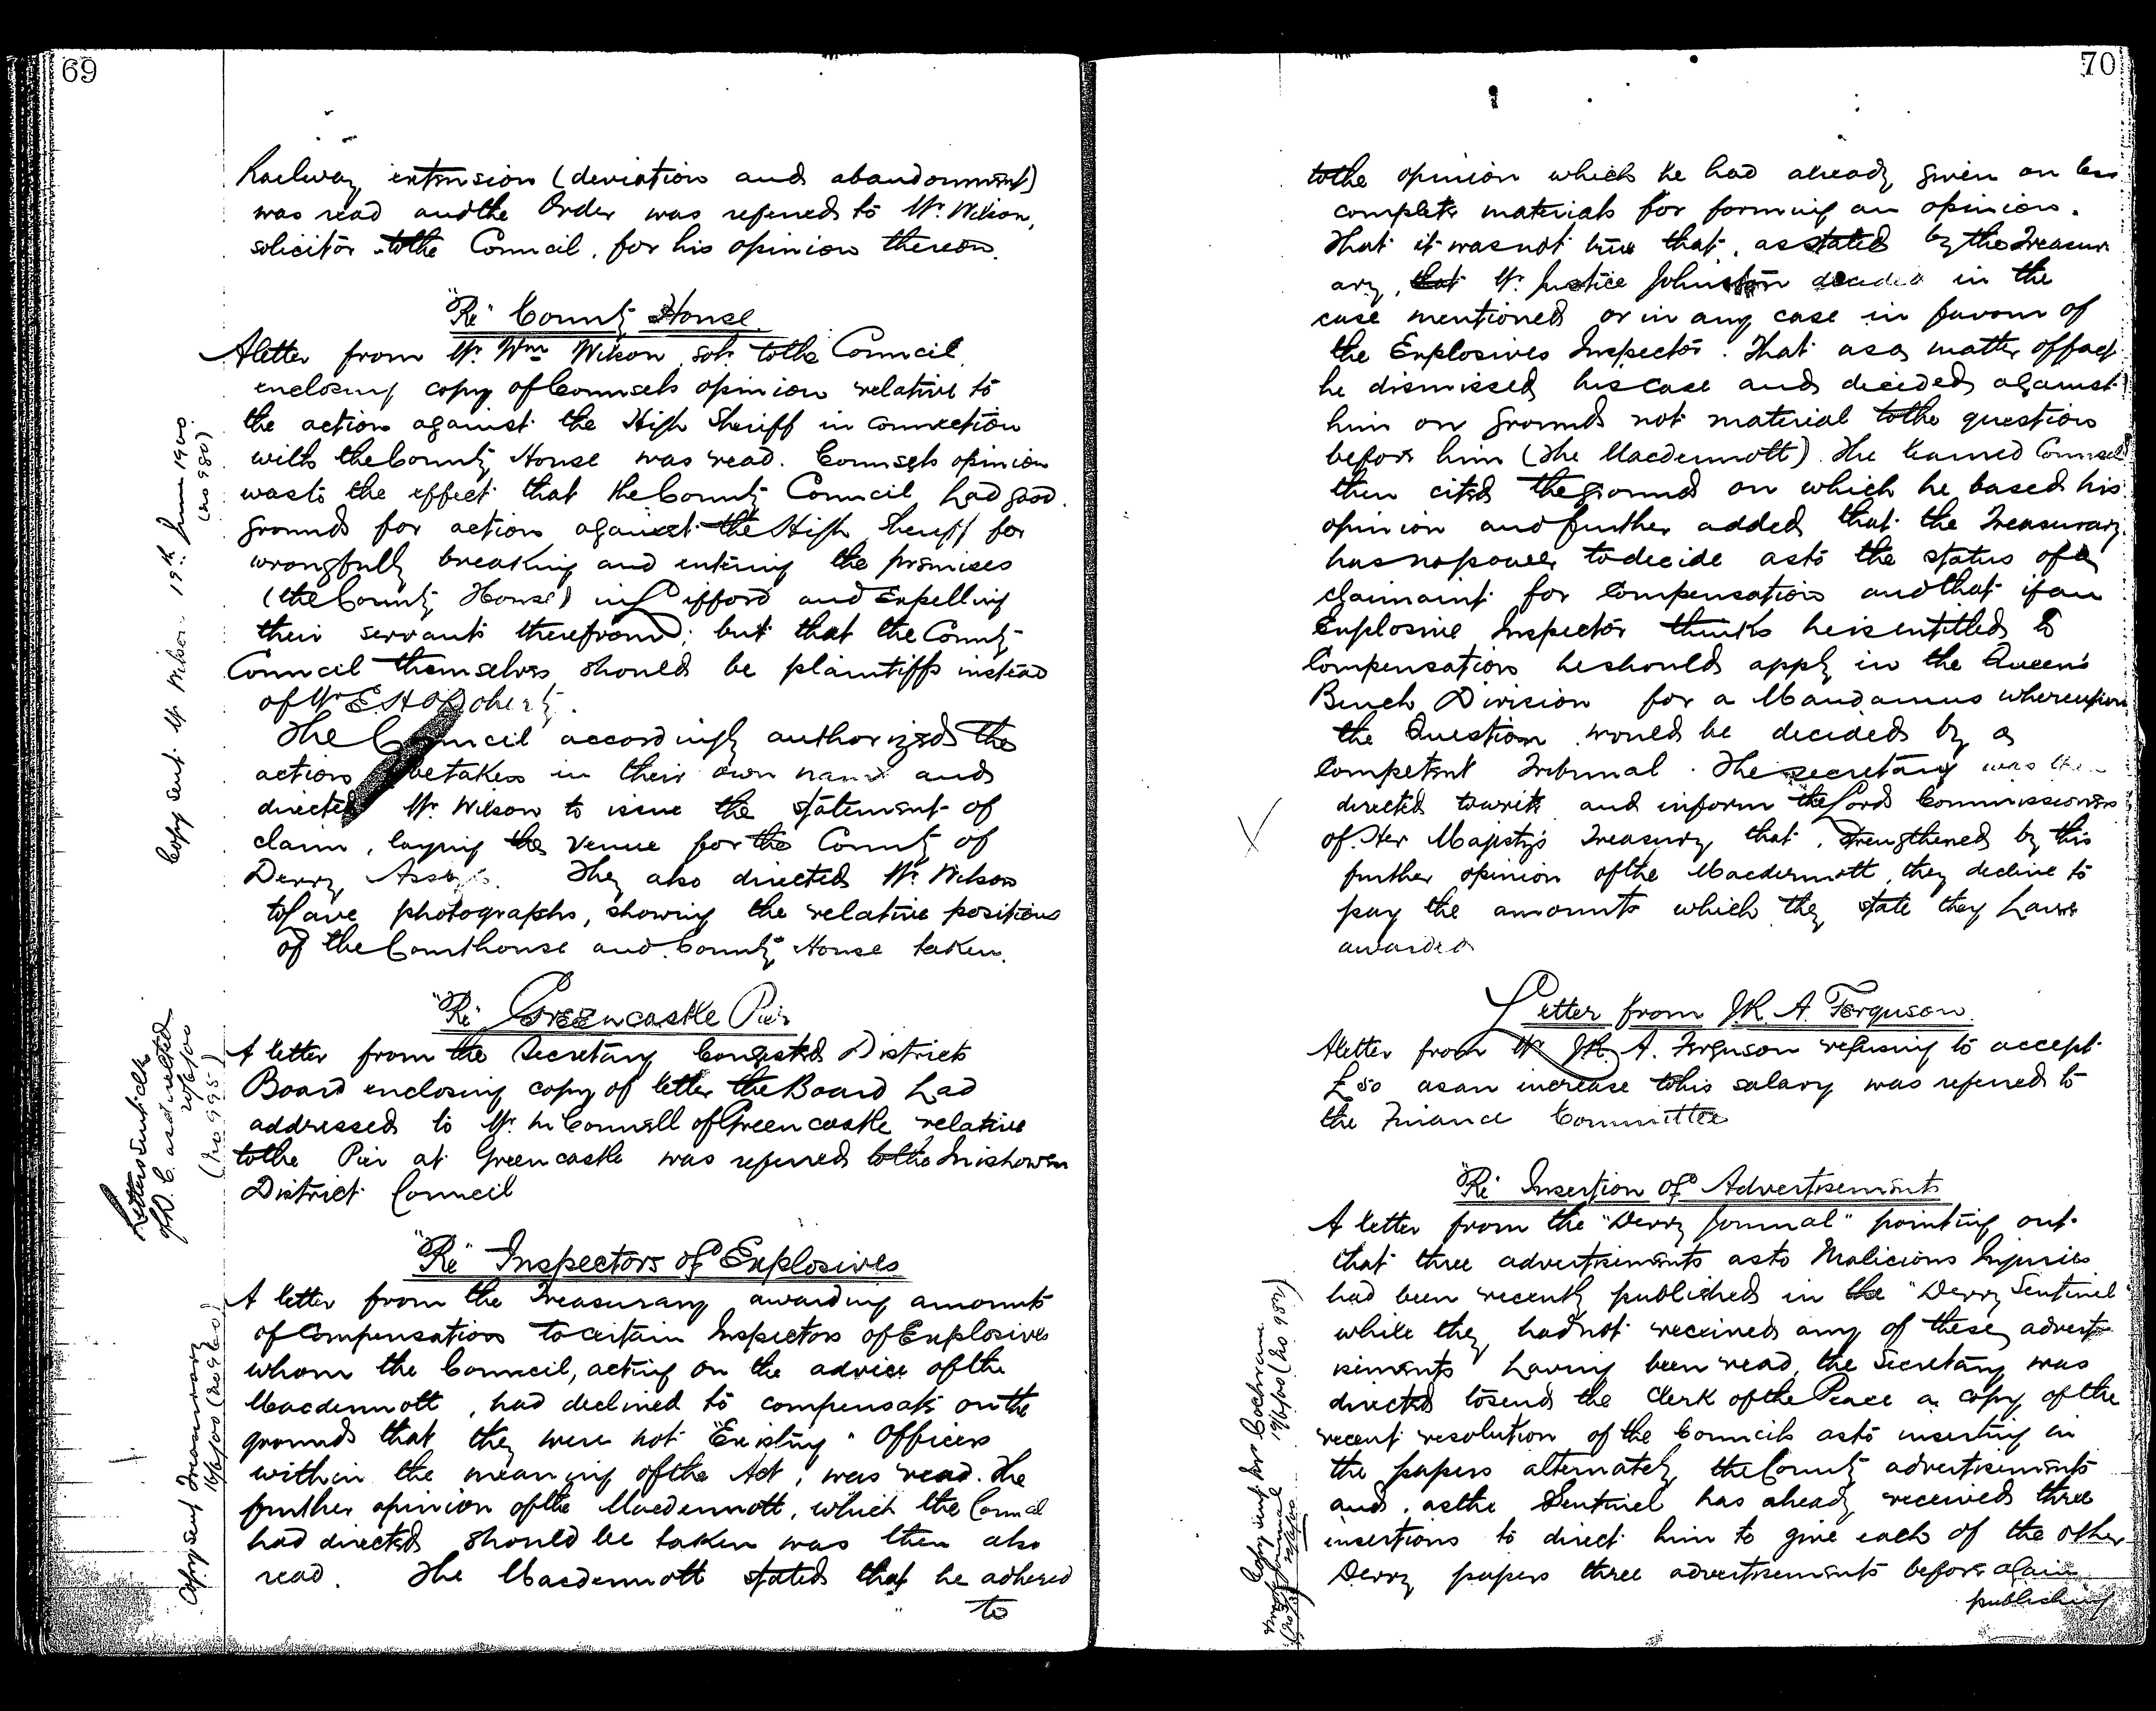 69
Railway extension (deviation and abandonment)
was read and the Order was referred to Mr. Wilson,
solicitor to the Council, for his opinion thereon.
"Re" County House.
A letter from Mr. Wm Wilson, solr. to the Council
enclosing copy of Counsels opinion relative to
the action against the High Sheriff in connection
with the County House was read. Counsels opinion
was to the effect that the County Council had good
grounds for action against the High Sheriff for
wrongfully breaking and entering the premises
(the County House) in Lifford and expelling
their servants therefrom; but that the County
Council themselves should be plaintiffs instead
of Mr E. H. O'Doherty.
The Council accordingly authorized the
action be taken in their own name and
directed Mr. Wilson to issue the statement of
claim, laying the venue for the County of
Derry Assizes. They also directed Mr. Wilson
to have photographs, showing the relative positions
of the Courthouse and County House taken.
Copy sent Mr Wilson 19th June 1900.
(No 980)
"Re" Greencastle Pier
A letter from the Secretary Congested Districts
Board enclosing copy of letter the Board had
addressed to Mr. McConnell of Greencastle relative
to the Pier at Greencastle was referred to the Inishowen
District Council
Letters sent clk
of D. C. as directed
20/6/00
(No 995)
"Re" Inspectors of Explosives
A letter from the Treasurary awarding amounts
of Compensation to certain Inspectors of Explosives
whom the Council, acting on the advice of the
Macdermott, had declined to compensate on the
grounds that they were not "Existing" Officers
within the meaning of the Act, was read. The
further opinion of the Macdermott, which the Council
had directed should be taken was then also
read. The Macdermott stated that he adhered
to
Copy sent Treasurary
16/6/00 (No 960)
70
to the opinion which he had already given on less
complete materials for forming an opinion.
That it was not true that, as stated by the Treasur
ary, that Mr. Justice Johnston decided in the
case mentioned or in any case in favour of
the Explosives Inspector. That as a matter of fact
he dismissed his case and decided against
him on grounds not material to the question
before him (The Macdermott). The learned Counsel
then cited the grounds on which he based his
opinion and further added that the Treasurary
has no power to decide as to the status of a
claimaint for Compensation and that if an
Explosive Inspector thinks he is entitled to
Compensation he should apply in the Queen's
Bench Division for a Mandamus whereupon
the Question would be decided by a
Competent Tribunal. The secretary was then
directed to write and inform the Lords Commissioners
of Her Majesty's Treasury that, strengthened by this
further opinion of the Macdermott, they decline to
pay the amounts which they state they have
awarded
Letter from J. R. A. Ferguson.
A letter from Mr J. R. A. Ferguson refusing to accept
£50 as an increase to his salary was referred to
the Finance Committee
"Re" Insertion of Advertisements
A letter from the "Derry Journal" pointing out
that three advertisements as to Malicious Injuries
had been recently published in the "Derry Sentinel"
while they had not received any of these advert
isements having been read, the Secretary was
directed to send the Clerk of the Peace a copy of the
recent resolution of the Councils as to inserting in
the papers alternately the County advertisements
and, as the Sentinel has already received three
insertions to direct him to give each of the other
Derry papers three advertisements before again
publishing
Copy sent Mr Cochrane
19/6/00 (No 982)